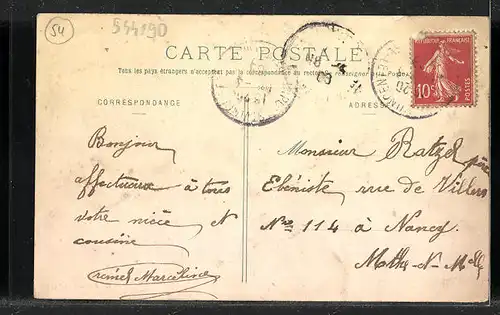 54
544890
CARTE POSTALE
Tous les pays étrangers n'acceptent pas la correspondance au recto, se renseigner
CORRESPONDANCE
ADRESSE
REPUBLIQUE FRANÇAISE
10c
POSTES
Bonjour
affectueux à tous
votre nièce et
cousine
Marceline
Monsieur Ratzel père
Ebéniste rue de Villers
Nº 114 à Nancy
Mthe-N-Mlle